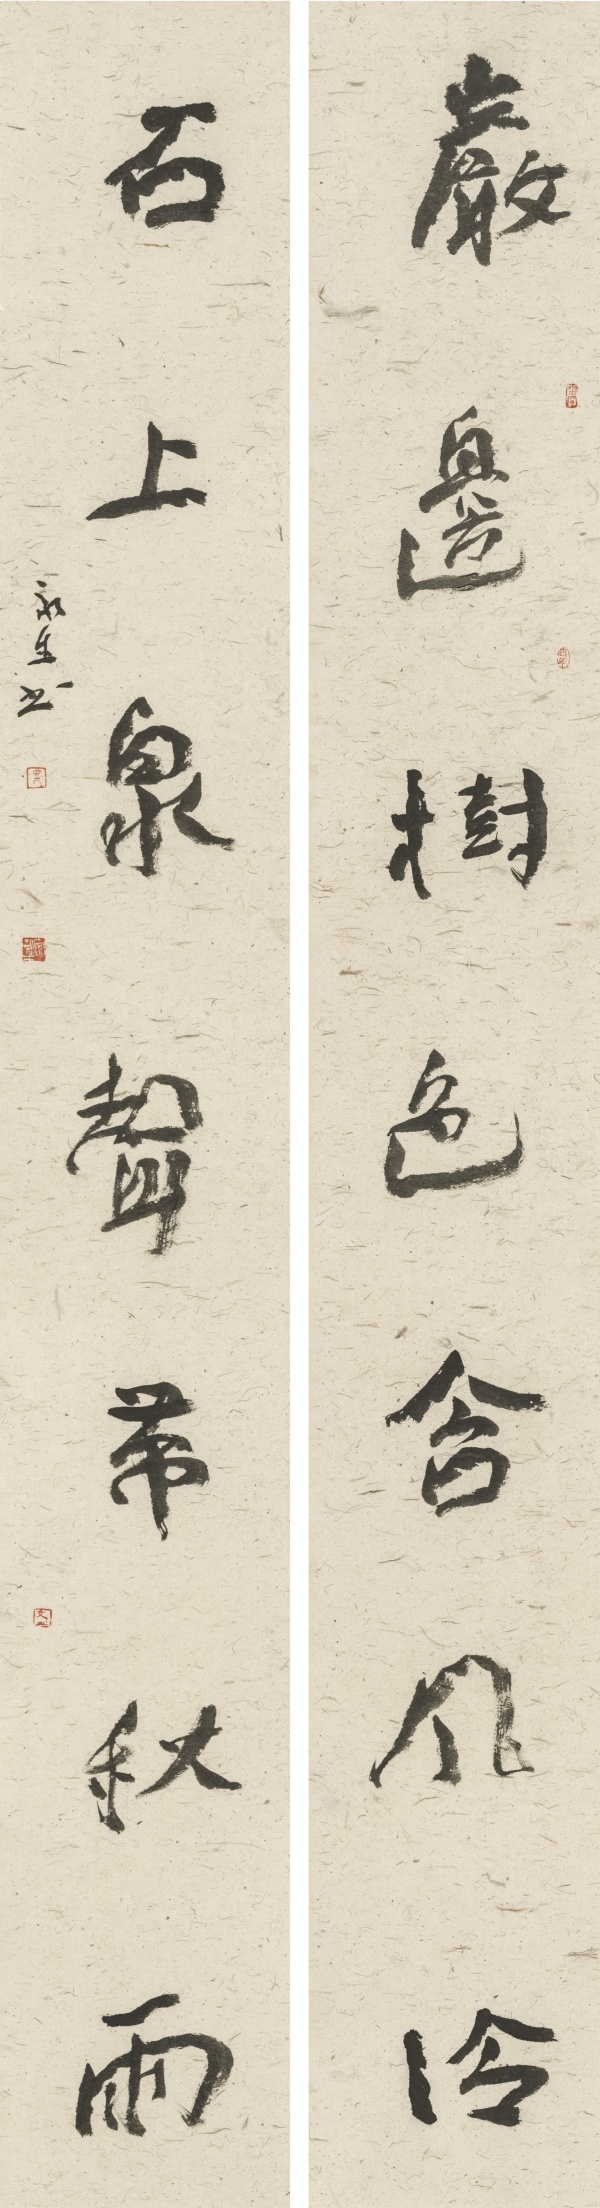 巖邊樹色含風冷
石上泉聲帶秋雨
永生书